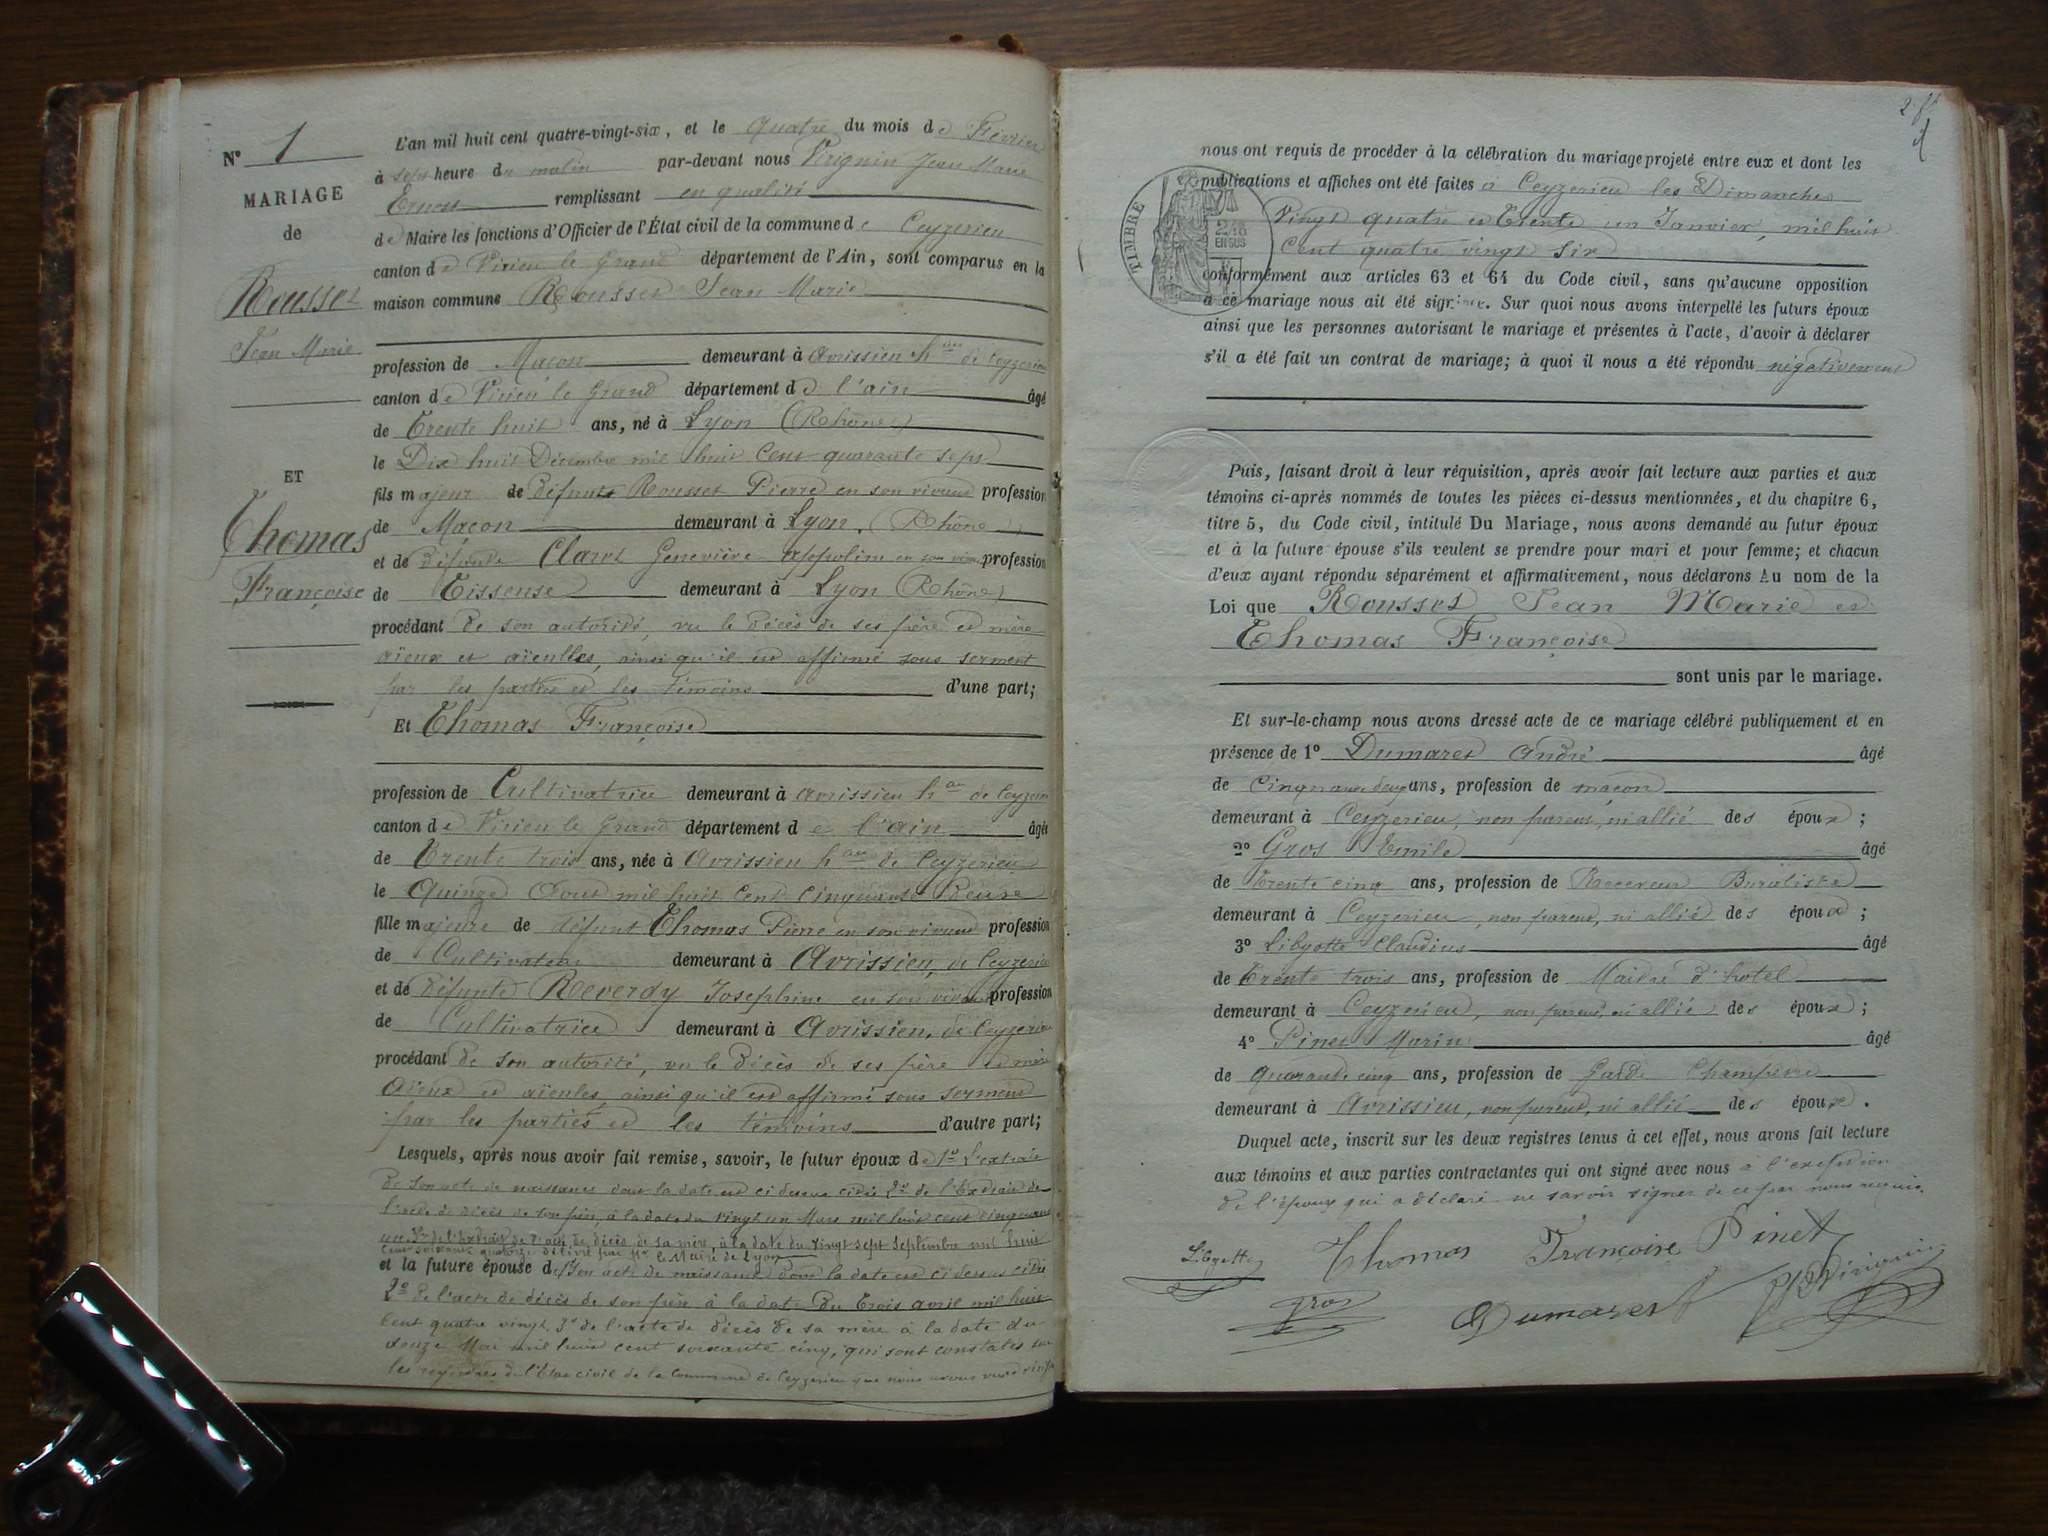 N° 1
MARIAGE
de
Rousset
Jean Marie
ET
Thomas
Françoise
L'an mil huit cent quatre-vingt-six, et le quatre du mois de Février
à sept heure du matin par-devant nous Jean Marie
Ernest remplissant en qualité
de Maire les fonctions d'Officier de l'État civil de la commune de Ceyzerieu
canton de Virieu le Grand département de l'Ain, sont comparus en la
maison commune Rousset Jean Marie
profession de Maçon demeurant à Avrissieu hau de Ceyzerieu
canton de Virieu le Grand département de l'ain âgé
de Trente huit ans, né à Lyon (Rhône)
le Dix huit Décembre mil huit Cent quarante sept
fils majeur de défunt Rousset Pierre en son vivant profession
de Maçon demeurant à Lyon, (Rhône)
et de défunte Claret Geneviève appoline en son vivant profession
de Tisseuse demeurant à Lyon (Rhône)
procédant de son autorité, vu le décès de ses père et mère
aïeux et aïeulles, ainsi qu'il est affirmé sous serment
par les parties et les témoins d'une part;
Et Thomas Françoise
profession de Cultivatrice demeurant à avrissieu hau de Ceyzerieu
canton de Virieu le Grand département de l'ain âgée
de Trente trois ans, née à Avrissieu hau de Ceyzerieu
le Quinze Aout mil huit Cent Cinquante Deux
fille majeure de défunt Thomas Pierre en son vivant profession
de Cultivateur demeurant à Avrissieu, de Ceyzerieu
et de défunte Reverdy Josephine en son vivant profession
de Cultivatrice demeurant à Avrissieu, de Ceyzerieu
procédant de son autorité, vu le décès de ses père et mère
Aïeux et aïeules, ainsi qu'il est affirmé sous serment
par les parties et les témoins d'autre part;
Lesquels, après nous avoir fait remise, savoir, le futur époux de 1° L'extrait
de son acte de naissance dont la date est ci dessus citée 2° de l'Extrait de
l'acte de décès de son père, à la date du vingt un Mars mil huit cent cinquante
un 3° de l'Extrait de l'acte de décès de sa mère, à la date du vingt sept Septembre mil huit
cent soixante quatorze délivré par Mr le Maire de Lyon
et la future épouse de 1° son acte de naissance dont la date est ci dessus citée
2° de l'acte de décès de son père à la date du Trois avril mil huit
Cent quatre vingt 3° de l'acte de décès de sa mère à la date du
douze Mai mil huit cent soixante cinq, qui sont constatés sur
les registres de l'Etat civil de la Commune de Ceyzerieu que nous avons
nous ont requis de procéder à la célébration du mariage projeté entre eux et dont les
publications et affiches ont été faites à Ceyzerieu les Dimanches
Vingt quatre et Trente un Janvier, mil huit
Cent quatre vingt six
conformément aux articles 63 et 64 du Code civil, sans qu'aucune opposition
à ce mariage nous ait été signifiée. Sur quoi nous avons interpellé les futurs époux
ainsi que les personnes autorisant le mariage et présentes à l'acte, d'avoir à déclarer
s'il a été fait un contrat de mariage; à quoi il nous a été répondu négativement
TIMBRE
EN SUS
Puis, faisant droit à leur réquisition, après avoir fait lecture aux parties et aux
témoins ci-après nommés de toutes les pièces ci-dessus mentionnées, et du chapitre 6,
titre 5, du Code civil, intitulé Du Mariage, nous avons demandé au futur époux
et à la future épouse s'ils veulent se prendre pour mari et pour femme; et chacun
d'eux ayant répondu séparément et affirmativement, nous déclarons Au nom de la
Loi que Rousset Jean Marie et
Thomas Françoise
sont unis par le mariage.
Et sur-le-champ nous avons dressé acte de ce mariage célébré publiquement et en
présence de 1° Dumarest André âgé
de cinquante deux ans, profession de maçon
demeurant à Ceyzerieu, non parent, ni allié des époux;
2° Gros Emile âgé
de trente cinq ans, profession de Receveur Buraliste
demeurant à Ceyzerieu, non parent, ni allié des époux;
3° Claudius âgé
de Trente trois ans, profession de Maitre d'hotel
demeurant à Ceyzerieu, non parent, ni allié des époux;
4° Pinet Marin âgé
de quarante cinq ans, profession de Garde Champêtre
demeurant à Avrissieu, non parent, ni allié des époux.
Duquel acte, inscrit sur les deux registres tenus à cet effet, nous avons fait lecture
aux témoins et aux parties contractantes qui ont signé avec nous à l'exception
de l'époux qui a déclaré ne savoir signer de ce par nous requis.
Thomas Françoise Pinet
Gros Dumarest